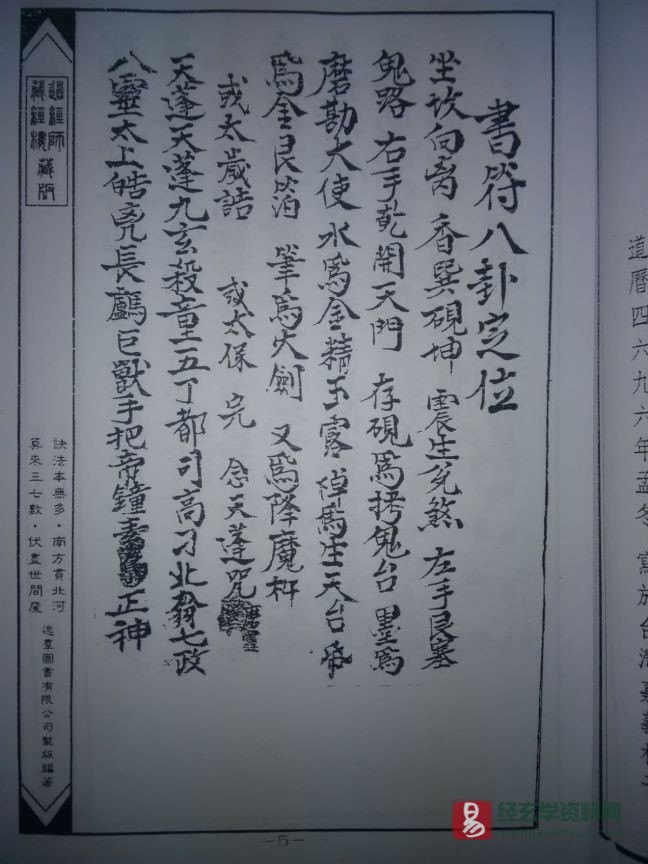 書符八卦定位
坐坎向离 香巽硯坤 震生兌煞 左手艮塞
鬼路 右手乾開天門 存硯爲拷鬼台 墨爲
磨勘大使 水爲金精玉露 爲生天台 紙
爲金艮箔 筆爲火劍 又爲降魔杵
或太歲誥 或太保 完 念天蓬咒
天蓬天蓬九玄殺童五丁都司高刁北翁七政
八靈太上皓凶長顱巨獸手把帝鐘素 正神
道經師
藏經樓藏版
訣法本無多·南方貫北河
算來三七數·伏盡世間魔
逸群圖書有限公司製版編著
—5—
道曆四六九六年孟冬 寫於台灣嘉義
易
经玄学资料网